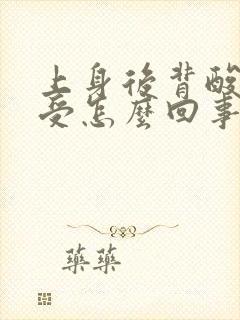 上身後背酸
受怎麼回事
藥藥